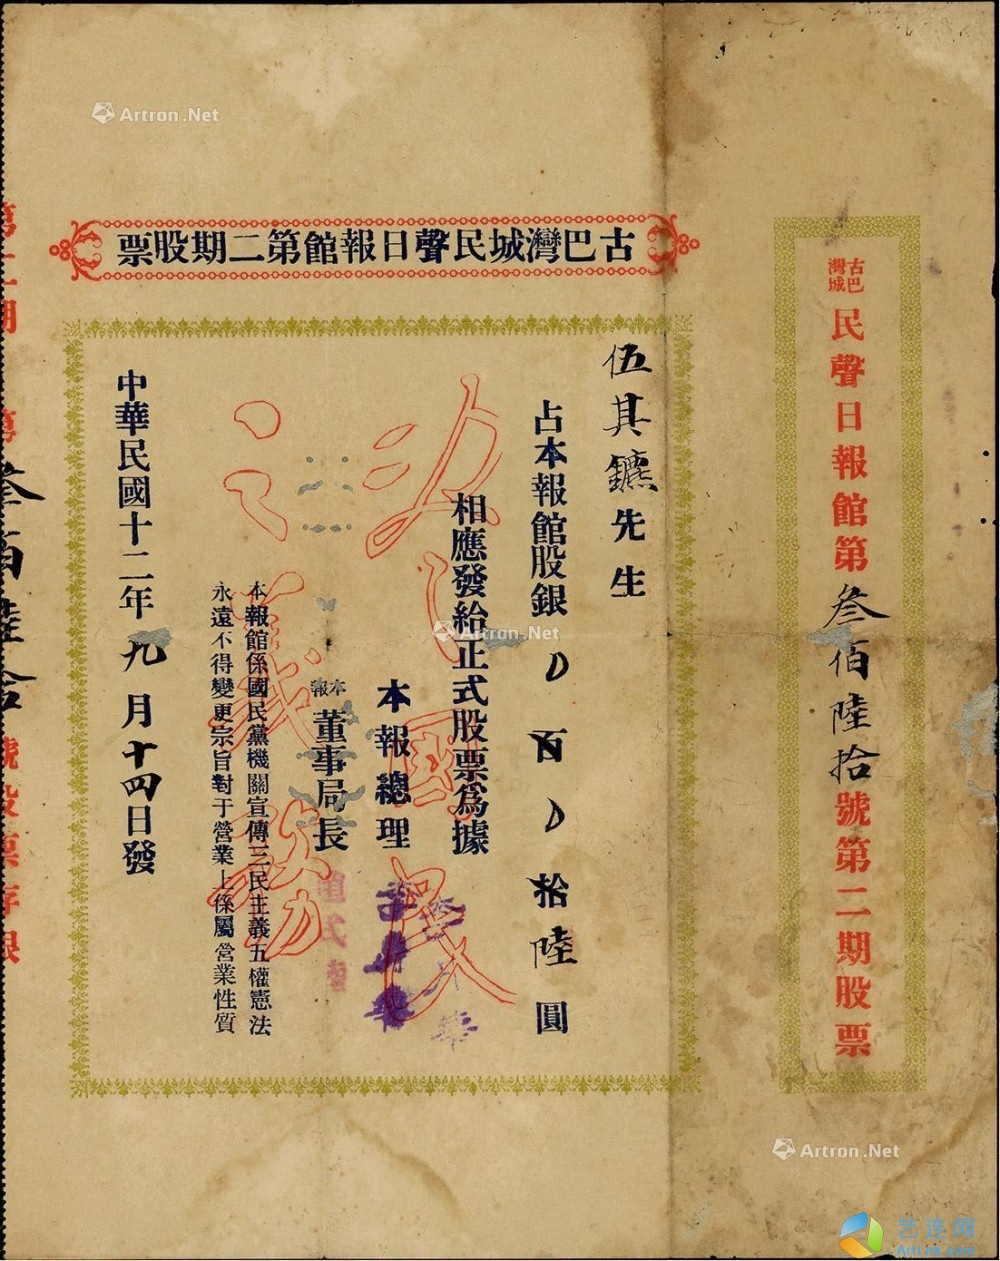 古巴灣城民聲日報館第二期股票
古巴灣城
民聲日報館第叁佰陸拾號第二期股票
伍其鑣先生
占本報館股銀 百 拾陸圓
相應發給正式股票為據
本報總理
本報
董事局長
本報館係國民黨機關宣傳三民主義五權憲法
永遠不得變更宗旨對于營業上係屬營業性質
中華民國十二年九月十四日發
叁佰陸拾號股票存根
Artron.Net
Artron.Net
Artron.Net
艺连网